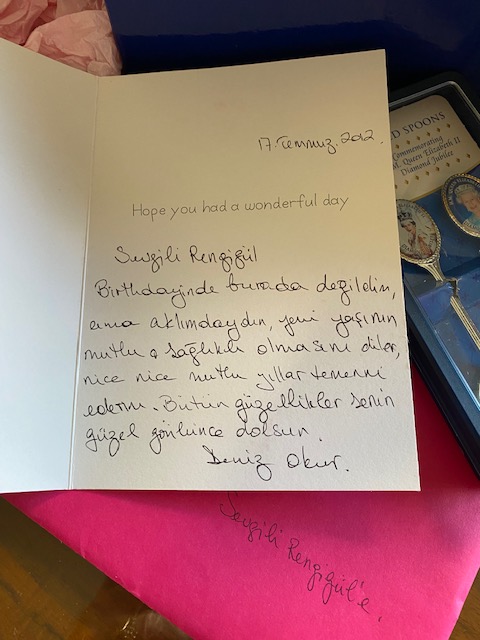 17.Temmuz.2012.
Hope you had a wonderful day
Sevgili Rengigül
Birthdayinde burada değildim,
ama aklımdaydın, yeni yaşının
mutlu & sağlıklı olmasını diler,
nice nice mutlu yıllar temenni
ederim. Bütün güzellikler senin
güzel gönlünce dolsun.
Deniz Okur.
D SPOONS
Commemorating
M. Queen Elizabeth II
Diamond Jubilee
Sevgili Rengigül'e,